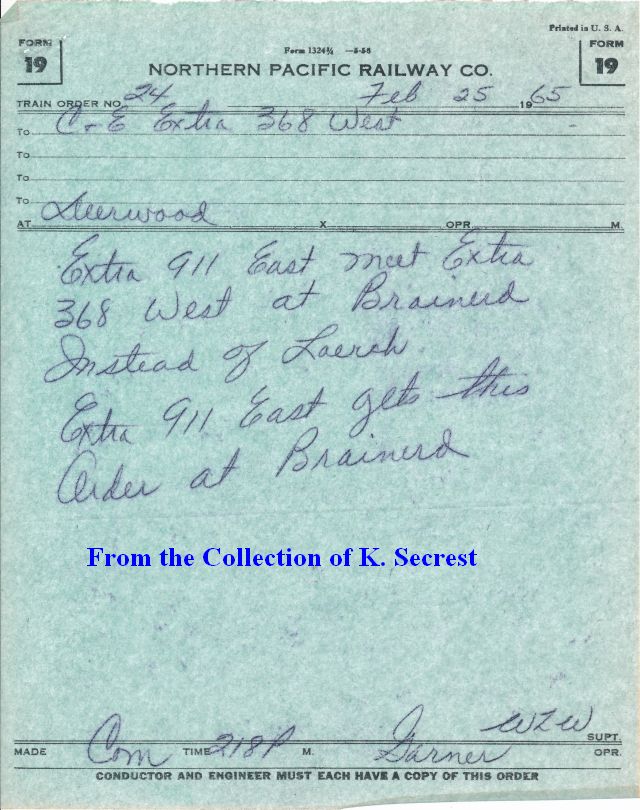 Printed in U. S. A.
FORM 19
Form 1324¾ —5-56
FORM 19
NORTHERN PACIFIC RAILWAY CO.
TRAIN ORDER NO. 24 Feb 25 1965
To C + E Extra 368 West
To
To
To
AT Deerwood X OPR. M.
Extra 911 East meet Extra
368 West at Brainerd
Instead of Loerch
Extra 911 East gets this
Order at Brainerd
From the Collection of K. Secrest
WZW SUPT.
MADE Com TIME 218P M. Garner OPR.
CONDUCTOR AND ENGINEER MUST EACH HAVE A COPY OF THIS ORDER